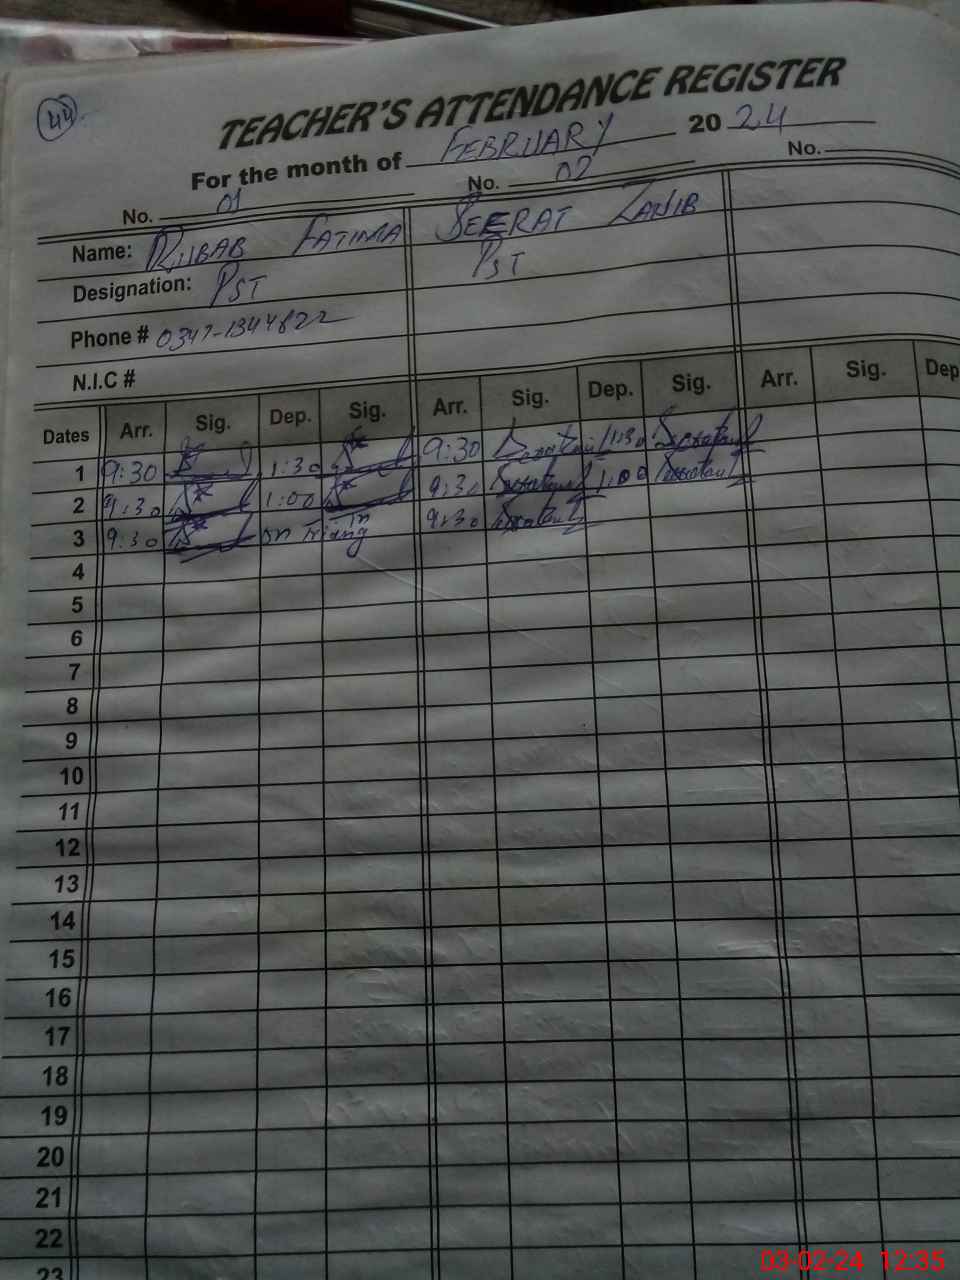 44
TEACHER'S ATTENDANCE REGISTER
For the month of FEBRUARY 2024
No. 01 No. 02 No.
Name: RUBAB FATIMA SEERAT ZANIB
Designation: PST PST
Phone # 0347-1344822
N.I.C #
Dates Arr. Sig. Dep. Sig. Arr. Sig. Dep. Sig. Arr. Sig. Dep
1 9:30 1:30 9:30 1:30
2 9:30 1:00 9:30 1:00
3 9:30 on 9:30
4
5
6
7
8
9
10
11
12
13
14
15
16
17
18
19
20
21
22
23
03-02-24 12:35